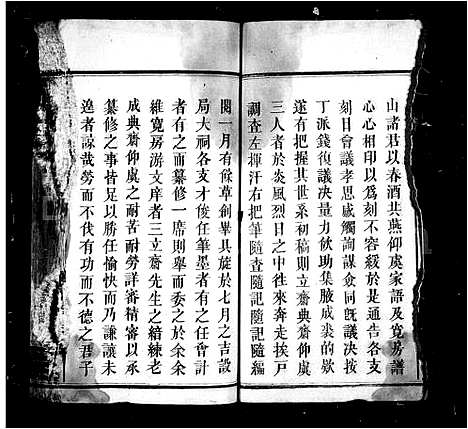 山諸君以春酒共燕仰虞家語及寬房譜
心心相印以爲刻不容緩於是通告各支
刻日會議孝思感觸詢謀僉同旣議决按
丁派錢復議决量力飲助集腋成裘的欵
遂有把握其世系初稿則立齋典齋仰虞
三人者於炎風烈日之中往來奔走挨戸
調查左揮汗右把筆隨查隨記隨記隨編
閱一月有餘草創畢具旋於七月之吉設
局大祠各支才俊任筆墨者有之任會計
者有之而纂修一席則舉而委之於余余
維寬房游文庠者三立齋先生之績練老
成典齋仰虞之耐苦耐勞詳審精審以承
纂修之事皆足以勝任愉快而乃謙讓未
遑者諒哉勞而不伐有功而不德之君子